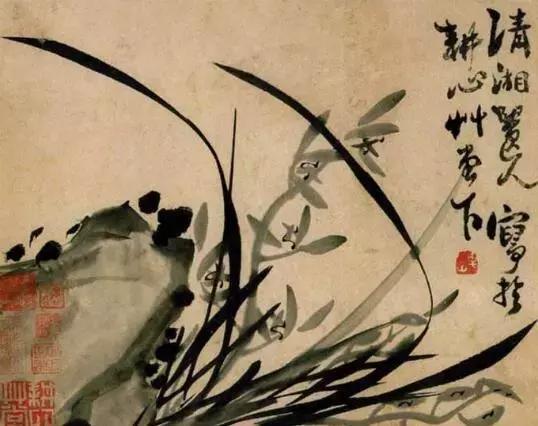 清湘遺人寫於
耕心艸堂下